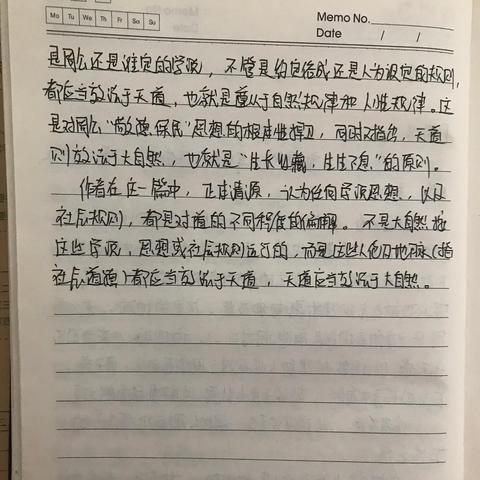 Memo No.
Mo Tu We Th Fr Sa Su
Date / /
是周公还是谁定的学派，不管是约定俗成还是人为设定的规则，
都应当效法于天道，也就是遵从于自然规律和人性规律。这
是对周公“敬德保民”思想的根本性捍卫，同时又指出，天道
则效法于大自然，也就是“生长收藏，生生不息”的原则。
作者在这一篇中，正本清源，认为任何学派思想，以及
社会规则，都是对道的不同程度的偏解。不是大自然按
这些学派，思想或社会规则运行的，而是这些人伦及地脉（指
社会道德）都应当效法于天道，天道应当效法于大自然。